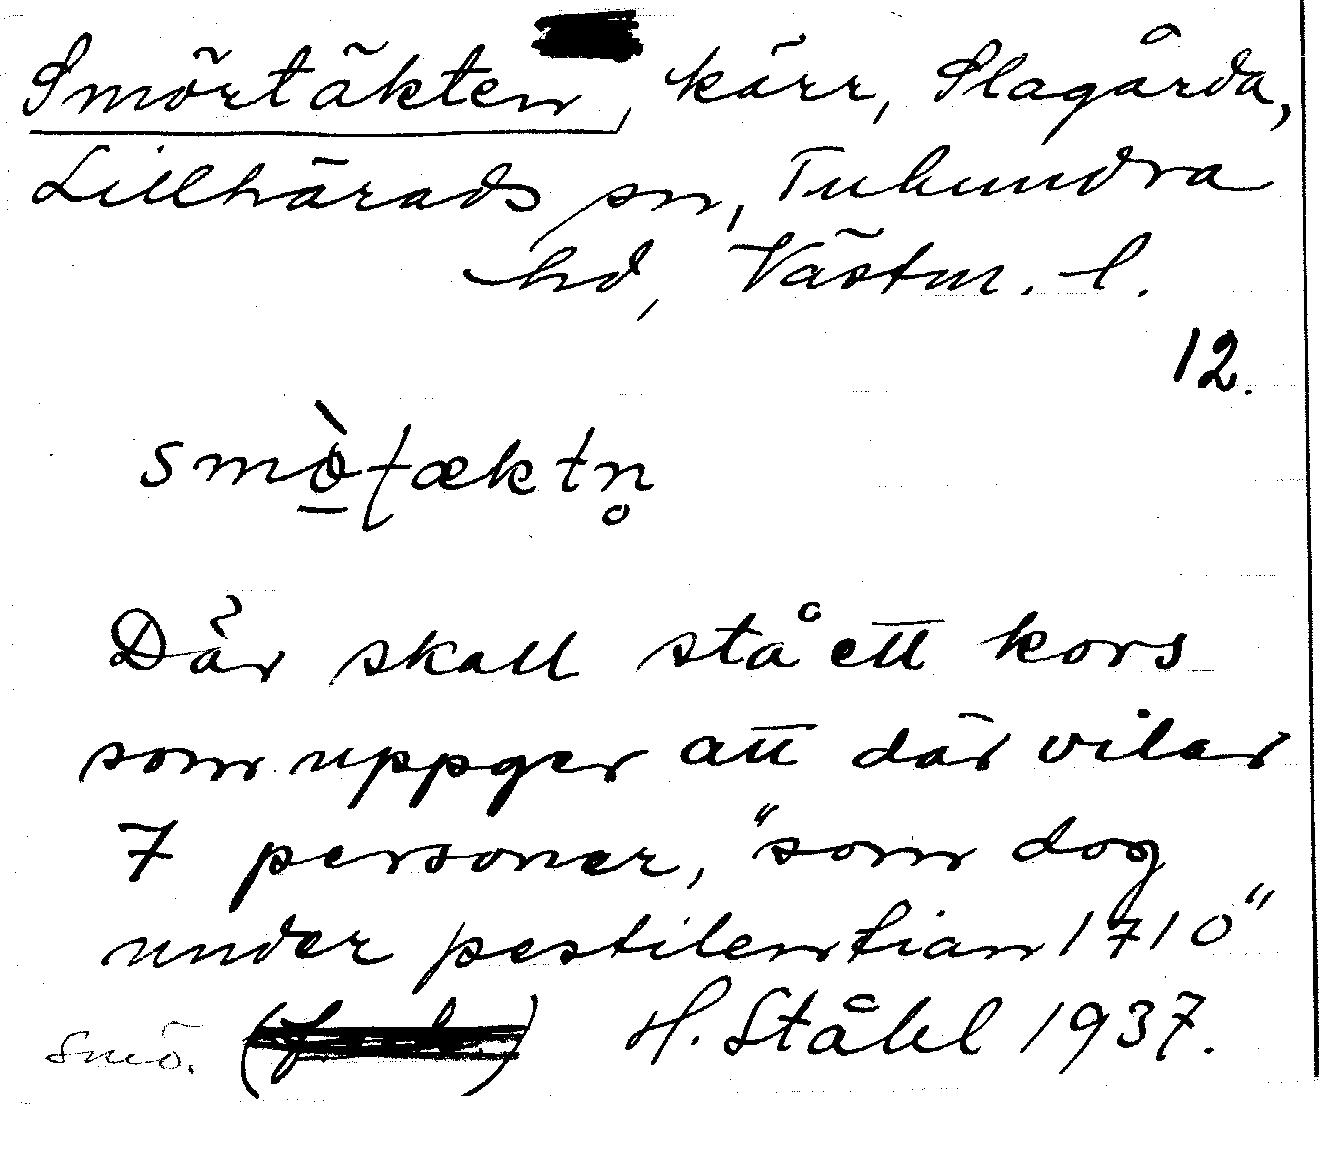 Smörtäkten, kärr, Slagårda,
Lillhärads sn, Tuhundra
hd, Västm. l.
12.
smö̀ʈæktn̥
Där skall stå ett kors
som uppger att där vilar
7 personer, "som dog
under pestilentian 1710"
smö. H. Ståhl 1937.